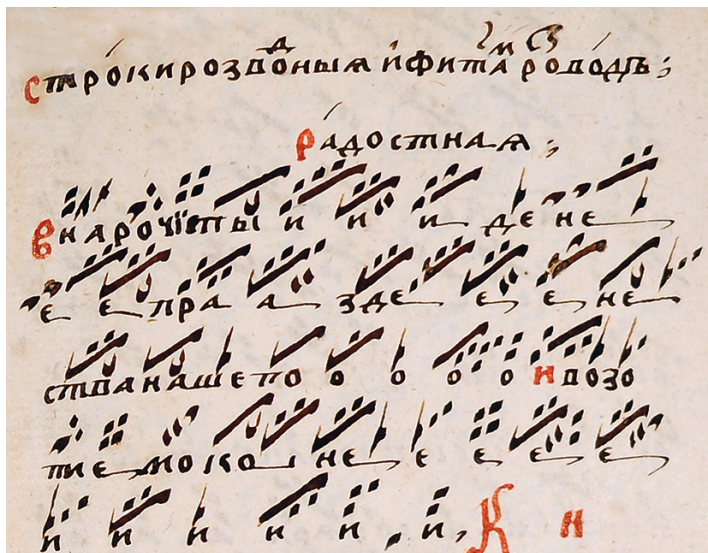 строки розводныя и фита розводъ;
радостная;
в нарочїтыи и и дене
е е пра а зде е е не
ства нашего о о о о и возо
пие мо ко не е е е е
и и и и и и, К н